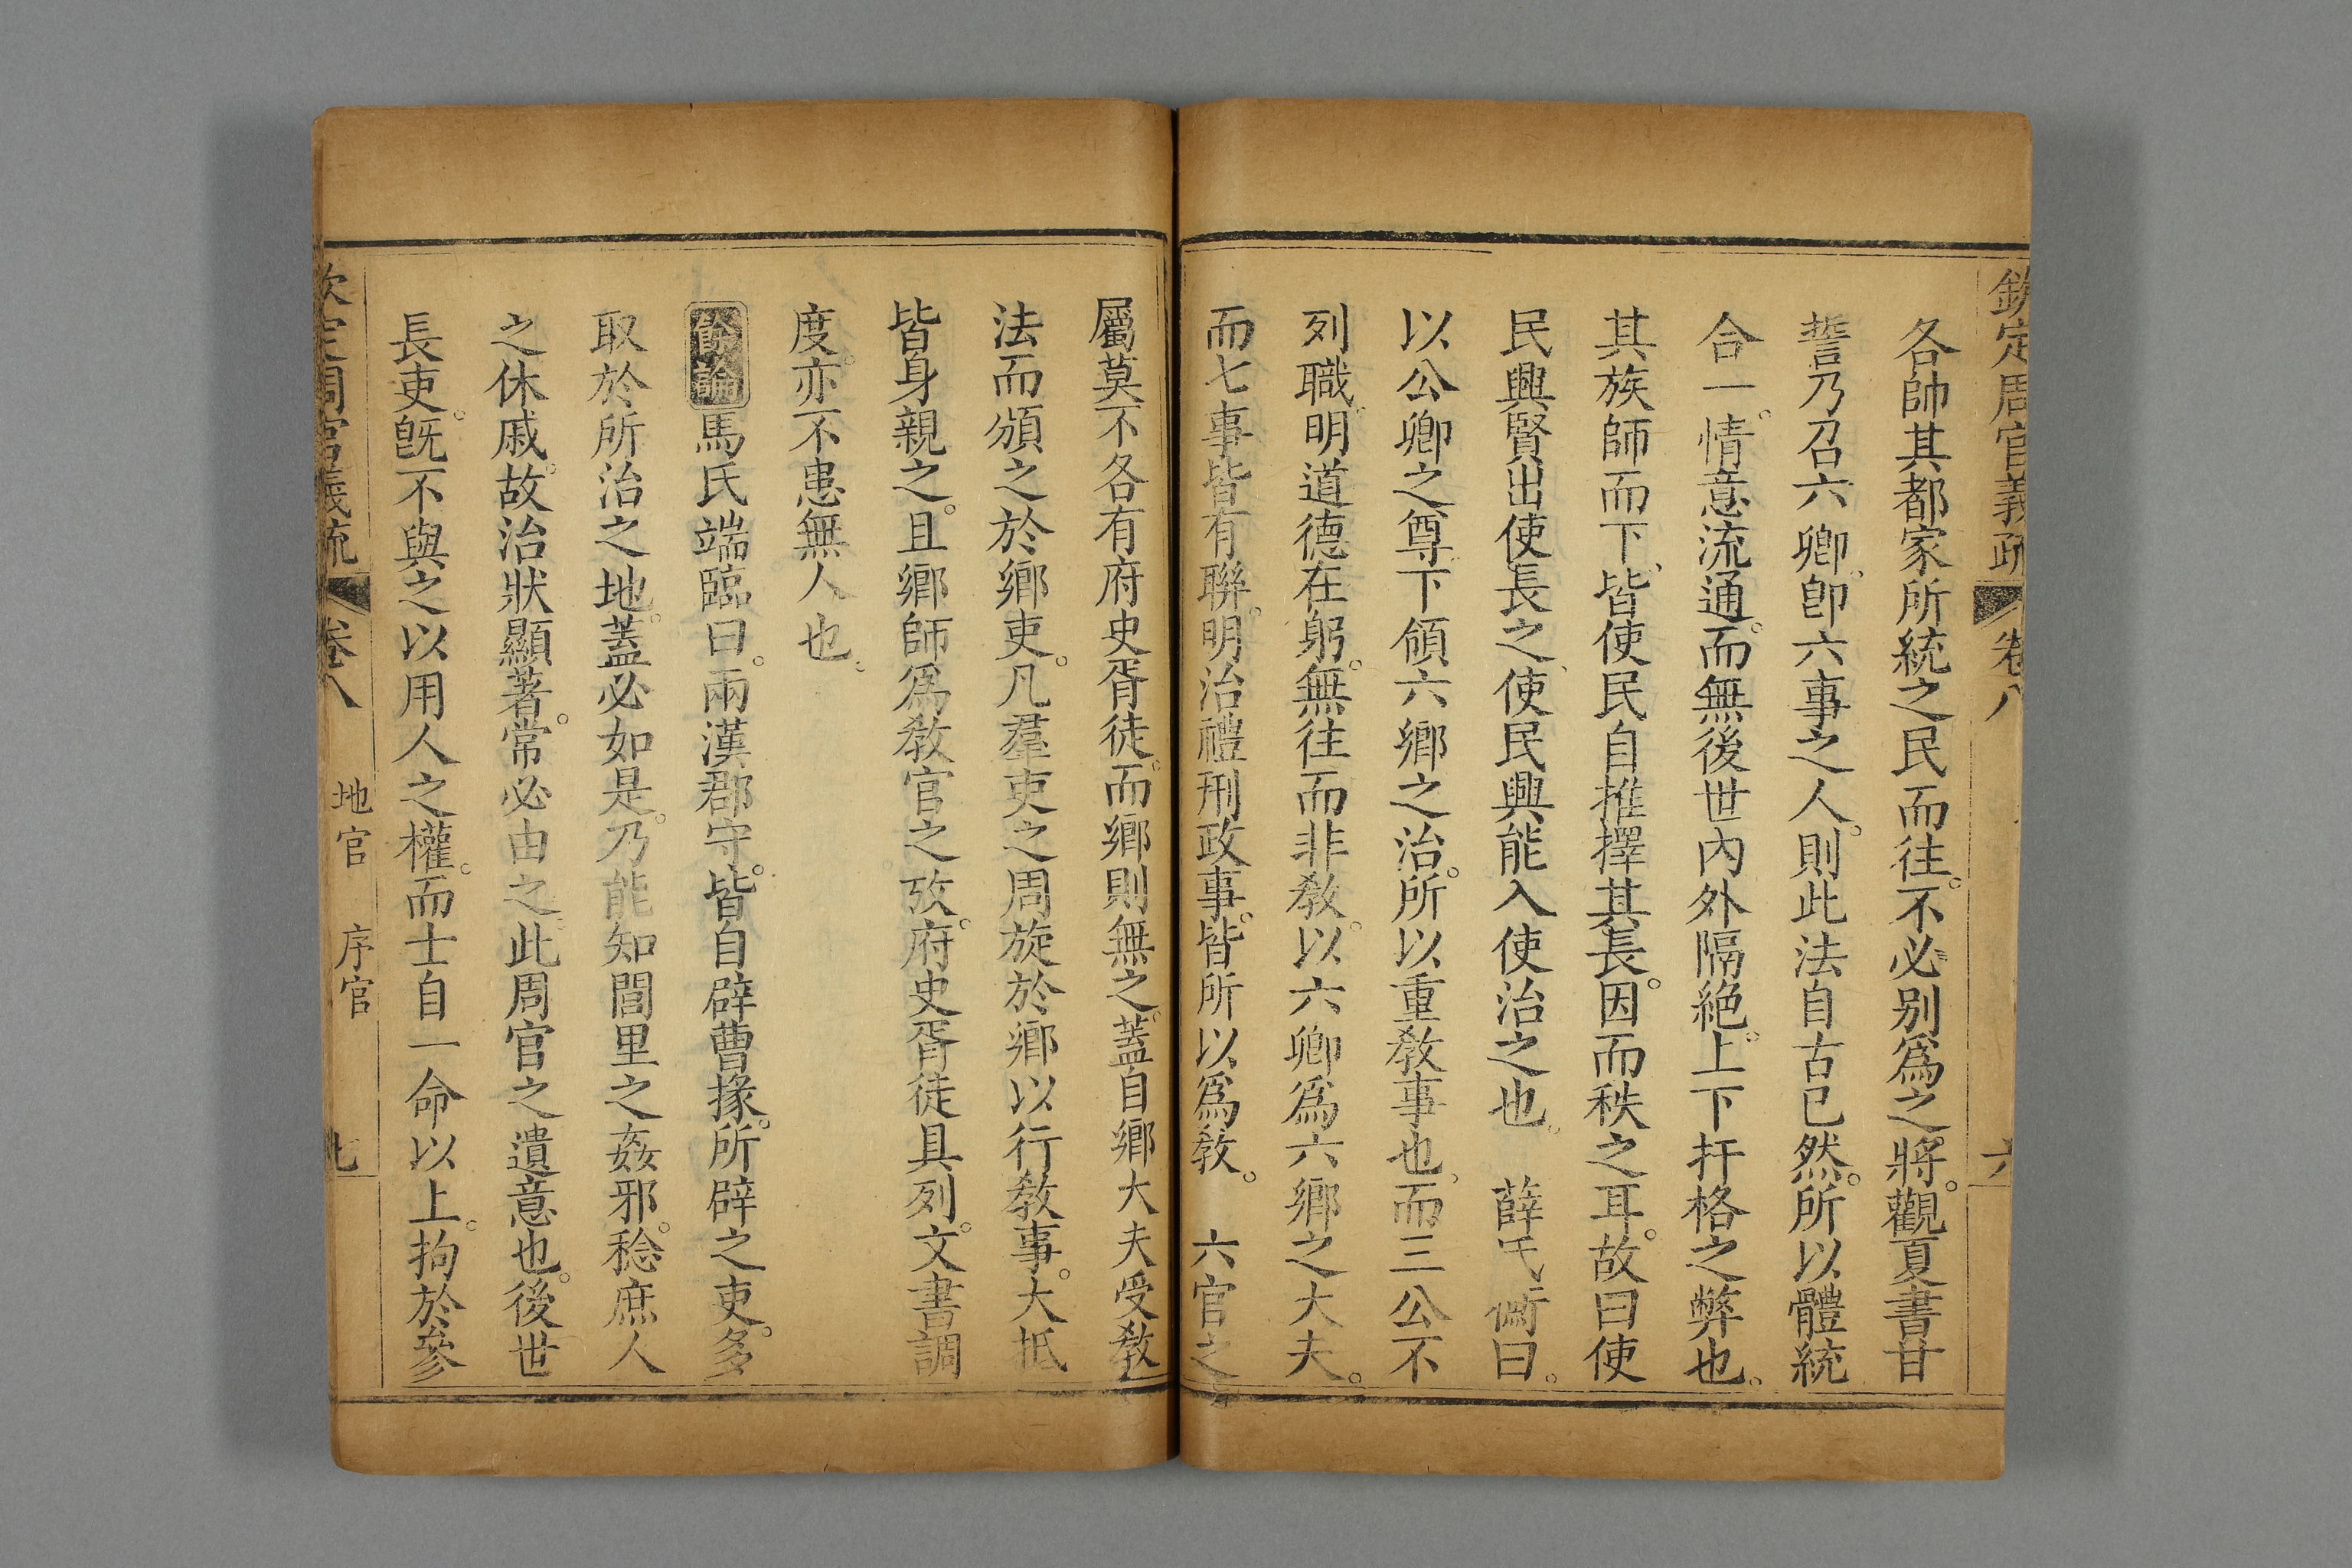 欽定周官義疏 卷八 六
各帥其都家所統之民而往。不必别爲之將。觀夏書甘
誓乃召六卿。卽六事之人。則此法自古已然。所以體統
合一。情意流通。而無後世內外隔絶。上下扞格之弊也。
其族師而下、皆使民自推擇其長。因而秩之耳。故曰使
民興賢出使長之、使民興能入使治之也。 薛氏衡曰。
以公卿之尊。下領六鄉之治。所以重敎事也、而三公不
列職。明道德在躬。無往而非敎。以六卿爲六鄉之大夫。
而七事皆有聯。明治禮刑政事。皆所以爲敎。 六官之
屬莫不各有府史胥徒。而鄉則無之。蓋自鄉大夫受敎
法而頒之於鄉吏。凡羣吏之周旋於鄉以行敎事。大抵
皆身親之。且鄉師爲敎官之攷。府史胥徒具列。文書調
度。亦不患無人也。
餘論馬氏端臨曰。兩漢郡守。皆自辟曹掾。所辟之吏。多
取於所治之地。蓋必如是。乃能知閭里之姦邪。稔庶人
之休戚。故治狀顯著。常必由之。此周官之遺意也。後世
長吏。旣不與之以用人之權。而士自一命以上。拘於參
欽定周官義疏 卷八 地官 序官 七